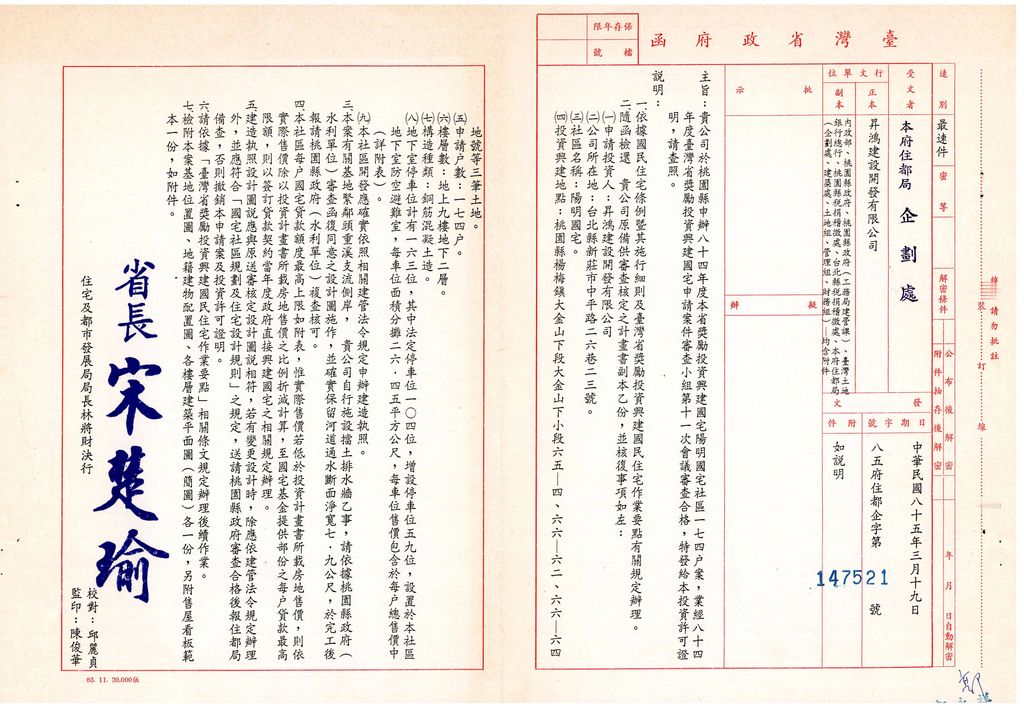 臺灣省政府函
保存年限
檔號
速別
最速件
密等
解密條件
公布後解密
附件抽存後解密
年 月 日自動解密
受文者
本府住都局企劃處
行文單位
正本
昇鴻建設開發有限公司
副本
內政部、桃園縣政府、桃園縣政府（工務局建管課）、臺灣土地
銀行總行、桃園縣稅捐稽徵處、台北縣稅捐稽徵處、本府住都局
（企劃處、建築處、土地組、管理組、財務組）—均含附件
發文
日期
中華民國八十五年三月十九日
字號
八五府住都企字第 147521 號
附件
如說明
批示
擬辦
裝訂線
請勿批註
主旨：貴公司於桃園縣申辦八十四年度本省獎勵投資興建國宅陽明國宅社區一七四戶案，業經八十四
年度臺灣省獎勵投資興建國宅申請案件審查小組第十一次會議審查合格，特發給本投資許可證
明，請查照。
說明：
一、依據國民住宅條例暨其施行細則及臺灣省獎勵投資興建國民住宅作業要點有關規定辦理。
二、隨函檢還 貴公司原備供審查核定之計畫書副本乙份，並核復事項如左：
㈠申請投資人：昇鴻建設開發有限公司
㈡公司所在地：台北縣新莊市中平路二六巷二三號。
㈢社區名稱：陽明國宅。
㈣投資興建地點：桃園縣楊梅鎮大金山下段大金山下小段六五—四、六六—六二、六六—六四
地號等三筆土地。
㈤申請戶數：一七四戶。
㈥樓層數：地上九樓地下二層。
㈦構造種類：鋼筋混凝土造。
㈧地下室停車位計有一六三位，其中法定停車位一〇四位，增設停車位五九位，設置於本社區
地下室防空避難室，每車位面積分攤二六．四五平方公尺，每車位售價包含於每戶總售價中
（詳附表）。
㈨本社區開發應確實依照相關建管法令規定申辦建造執照。
三、本案有關基地緊鄰頭重溪支流側岸，貴公司自行施設擋土排水牆乙事，請依據桃園縣政府（
水利單位）審查函復同意之設計圖施作，並確實保留河道通水斷面淨寬七．九公尺，於完工後
報請桃園縣政府（水利單位）複查核可。
四、本社區每戶國宅貸款額度最高上限如附表，惟實際售價若低於投資計畫書所載房地售價，則依
實際售價除以投資計畫書所載房地售價之比例折減計算，至國宅基金提供部份之每戶貸款最高
限額，則以簽訂貸款契約當年度政府直接興建國宅之相關規定辦理。
五、建造執照設計圖說應與原送審核定設計圖說相符，若有變更設計時，除應依建管法令規定辦理
外，並應符合「國宅社區規劃及住宅設計規則」之規定，送請桃園縣政府審查合格後報住都局
備查，否則撤銷本申請案及投資許可證明。
六、請依據「臺灣省獎勵投資興建國民住宅作業要點」相關條文規定辦理後續作業。
七、檢附本案基地位置圖、地籍建物配置圖、各樓層建築平面圖（簡圖）各一份，另附售屋看板範
本一份，如附件。
省長 宋楚瑜
住宅及都市發展局局長林將財決行
校對：邱麗貞
監印：陳俊華
83. 11. 20,000份